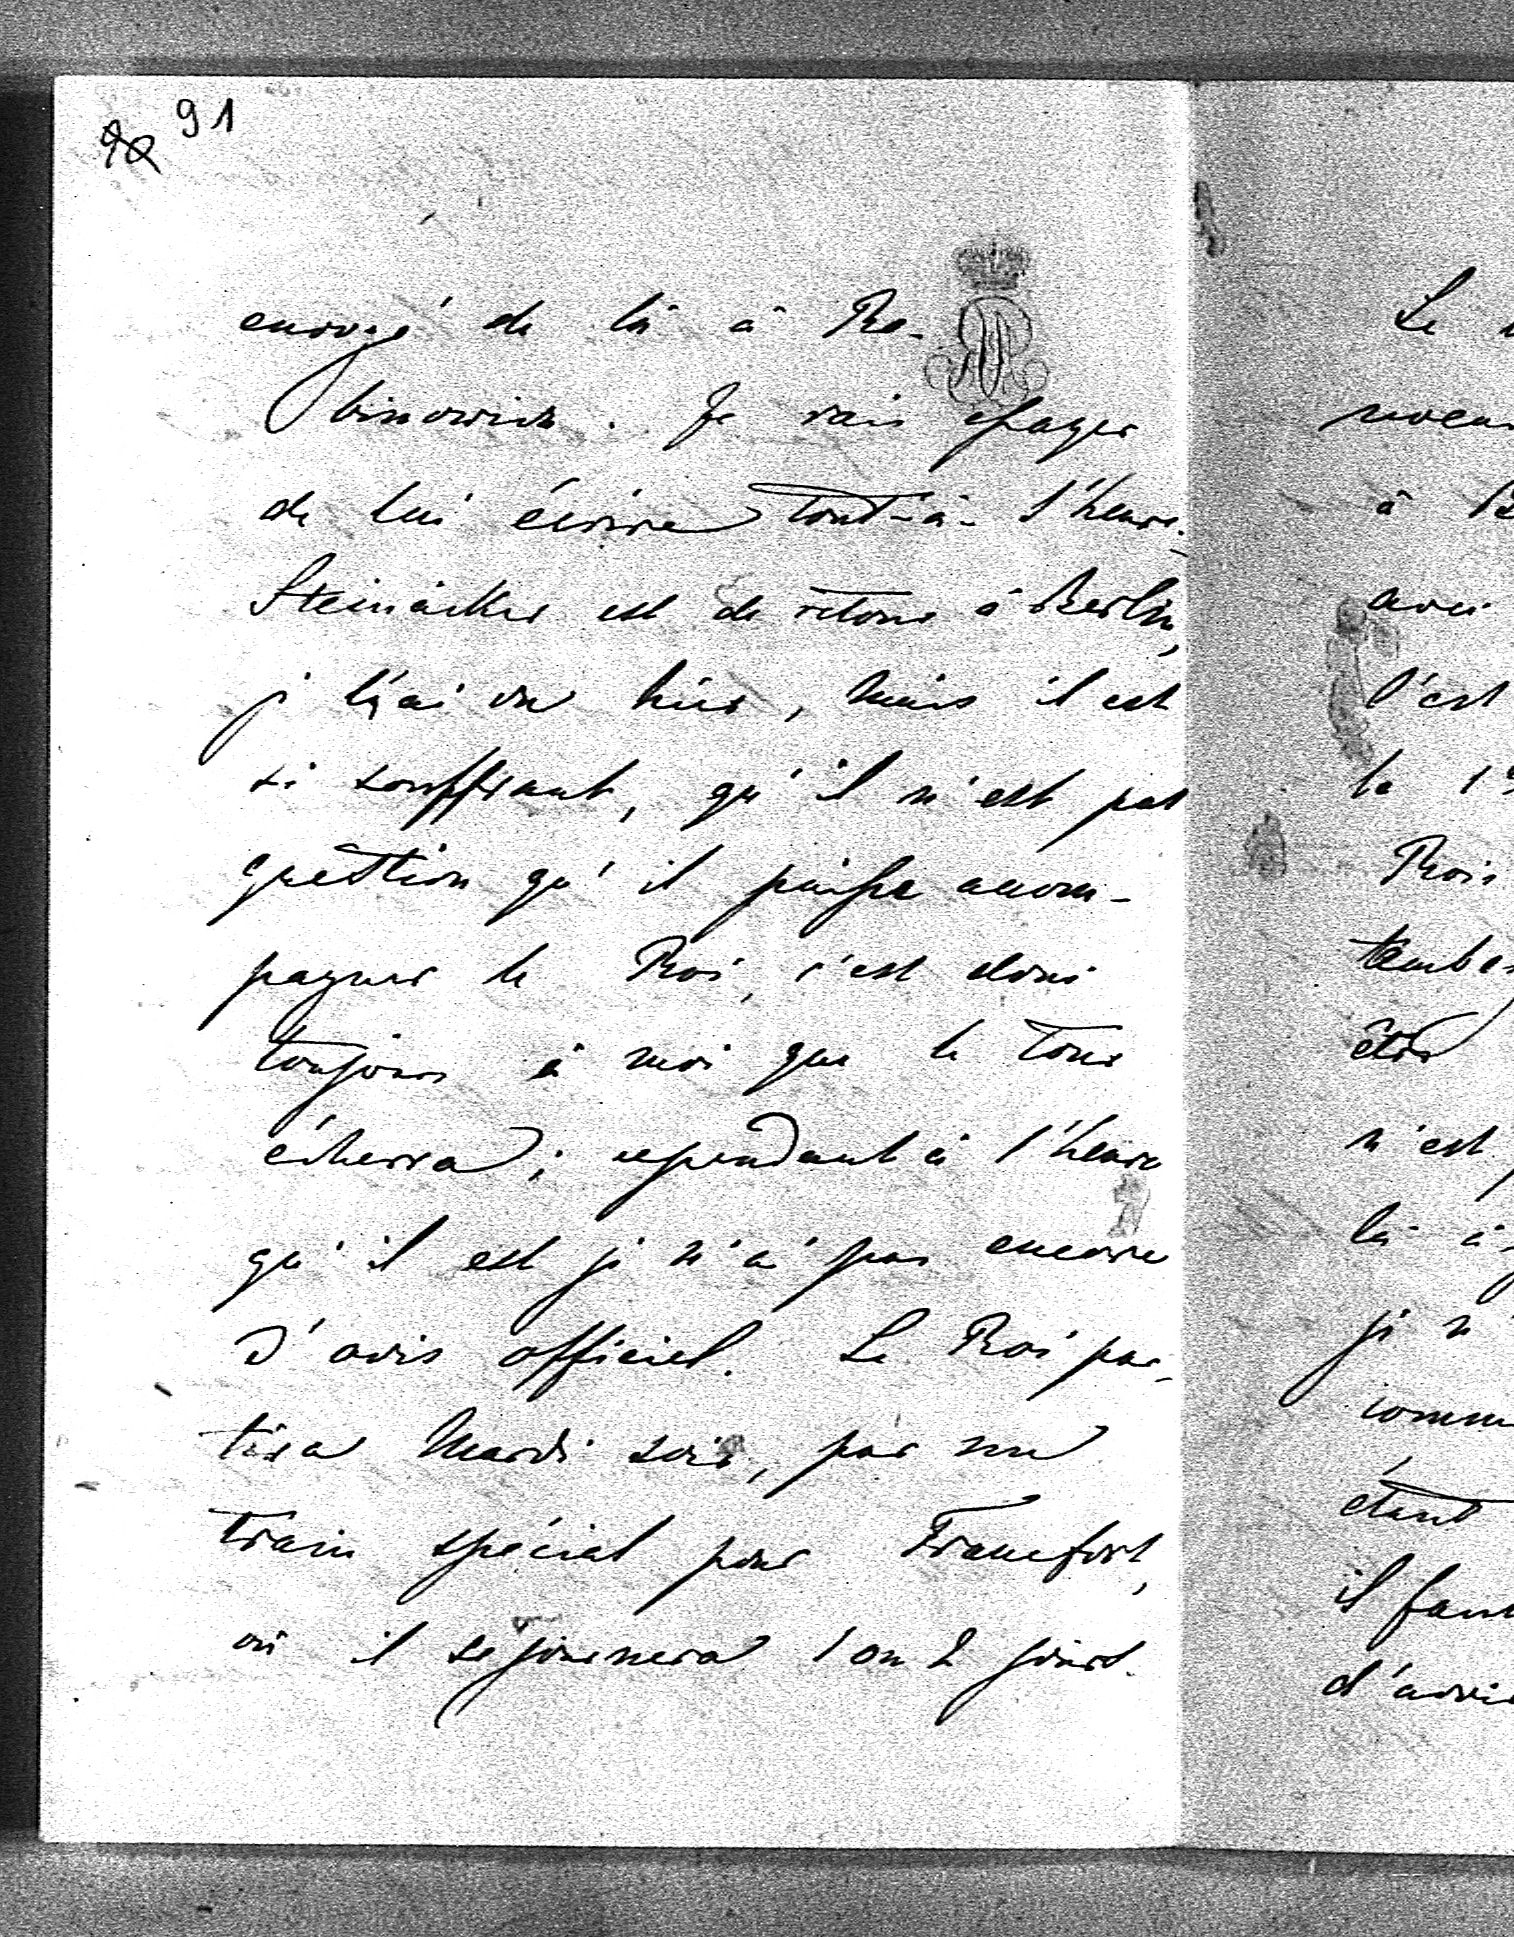 91
envoyé de là à Ra-
binowich. Je vais essayer
de lui écrire tout-à-l'heure.
Steinäcker est de retour à Berlin,
je l'ai vu hier, mais il est
si souffrant, qu'il n'est pas
question qu'il puisse accom-
pagner le Roi, c'est donc
toujours à moi que le tour
écherra; cependant à l'heure
qu'il est je n'ai pas encore
d'avis officiel. Le Roi par-
tira Mardi soir, par un
train spécial pour Francfort,
où il séjournera 1 ou 2 jours.
Le
à
avec
c'est
la
Rois
être
n'est
là à
je n'
comm
étant
il faut